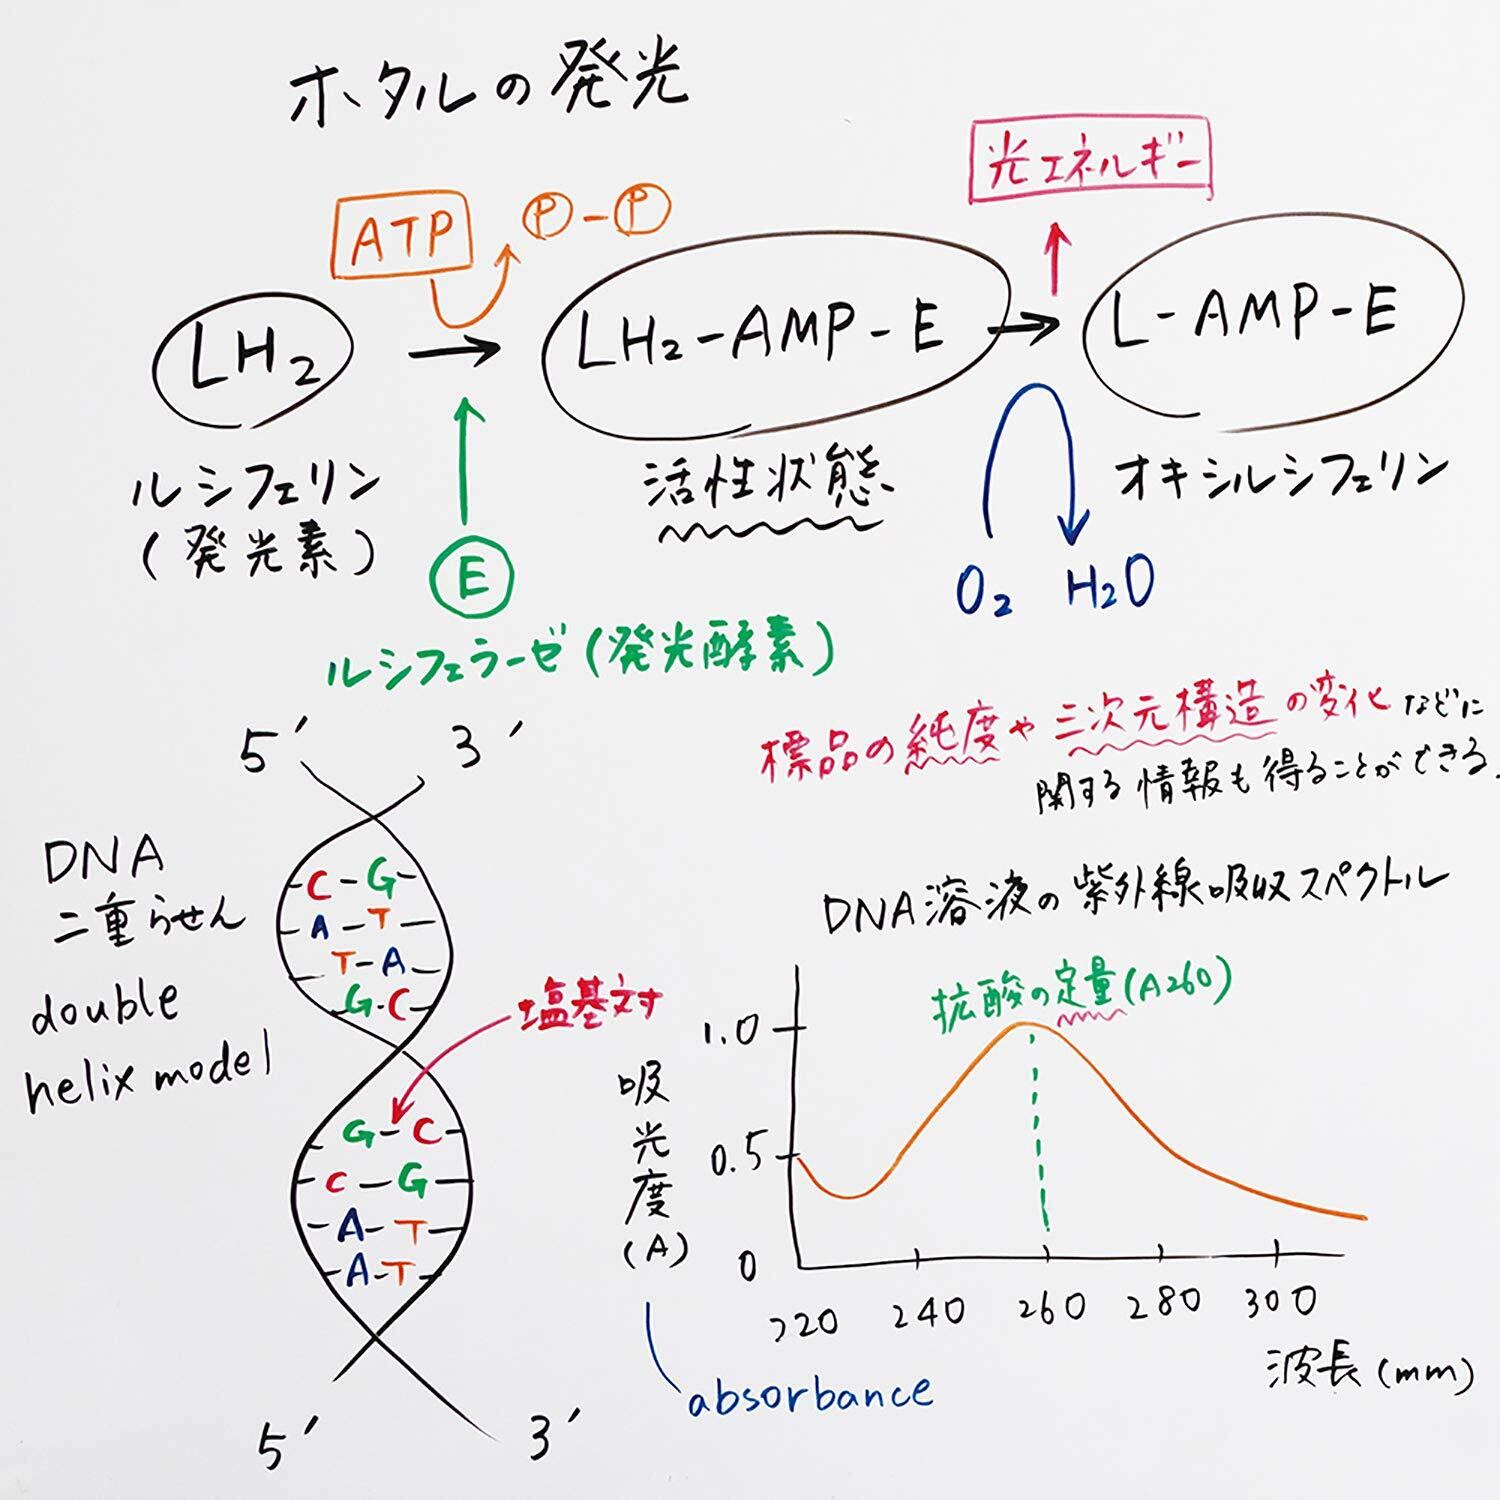 ホタルの発光
光エネルギー
ATP
P-P
LH2
LH2-AMP-E
L-AMP-E
ルシフェリン
(発光素)
活性状態
オキシルシフェリン
E
O2 H2O
ルシフェラーゼ(発光酵素)
標品の純度や三次元構造の変化などに
関する情報も得ることができる.
5′ 3′
DNA
二重らせん
double
helix model
C-G
A-T
T-A
G-C
塩基対
G-C
C-G
A-T
A-T
5′ 3′
DNA溶液の紫外線吸収スペクトル
拡酸の定量(A260)
1.0
0.5
0
吸光度(A)
220 240 260 280 300
波長(mm)
absorbance